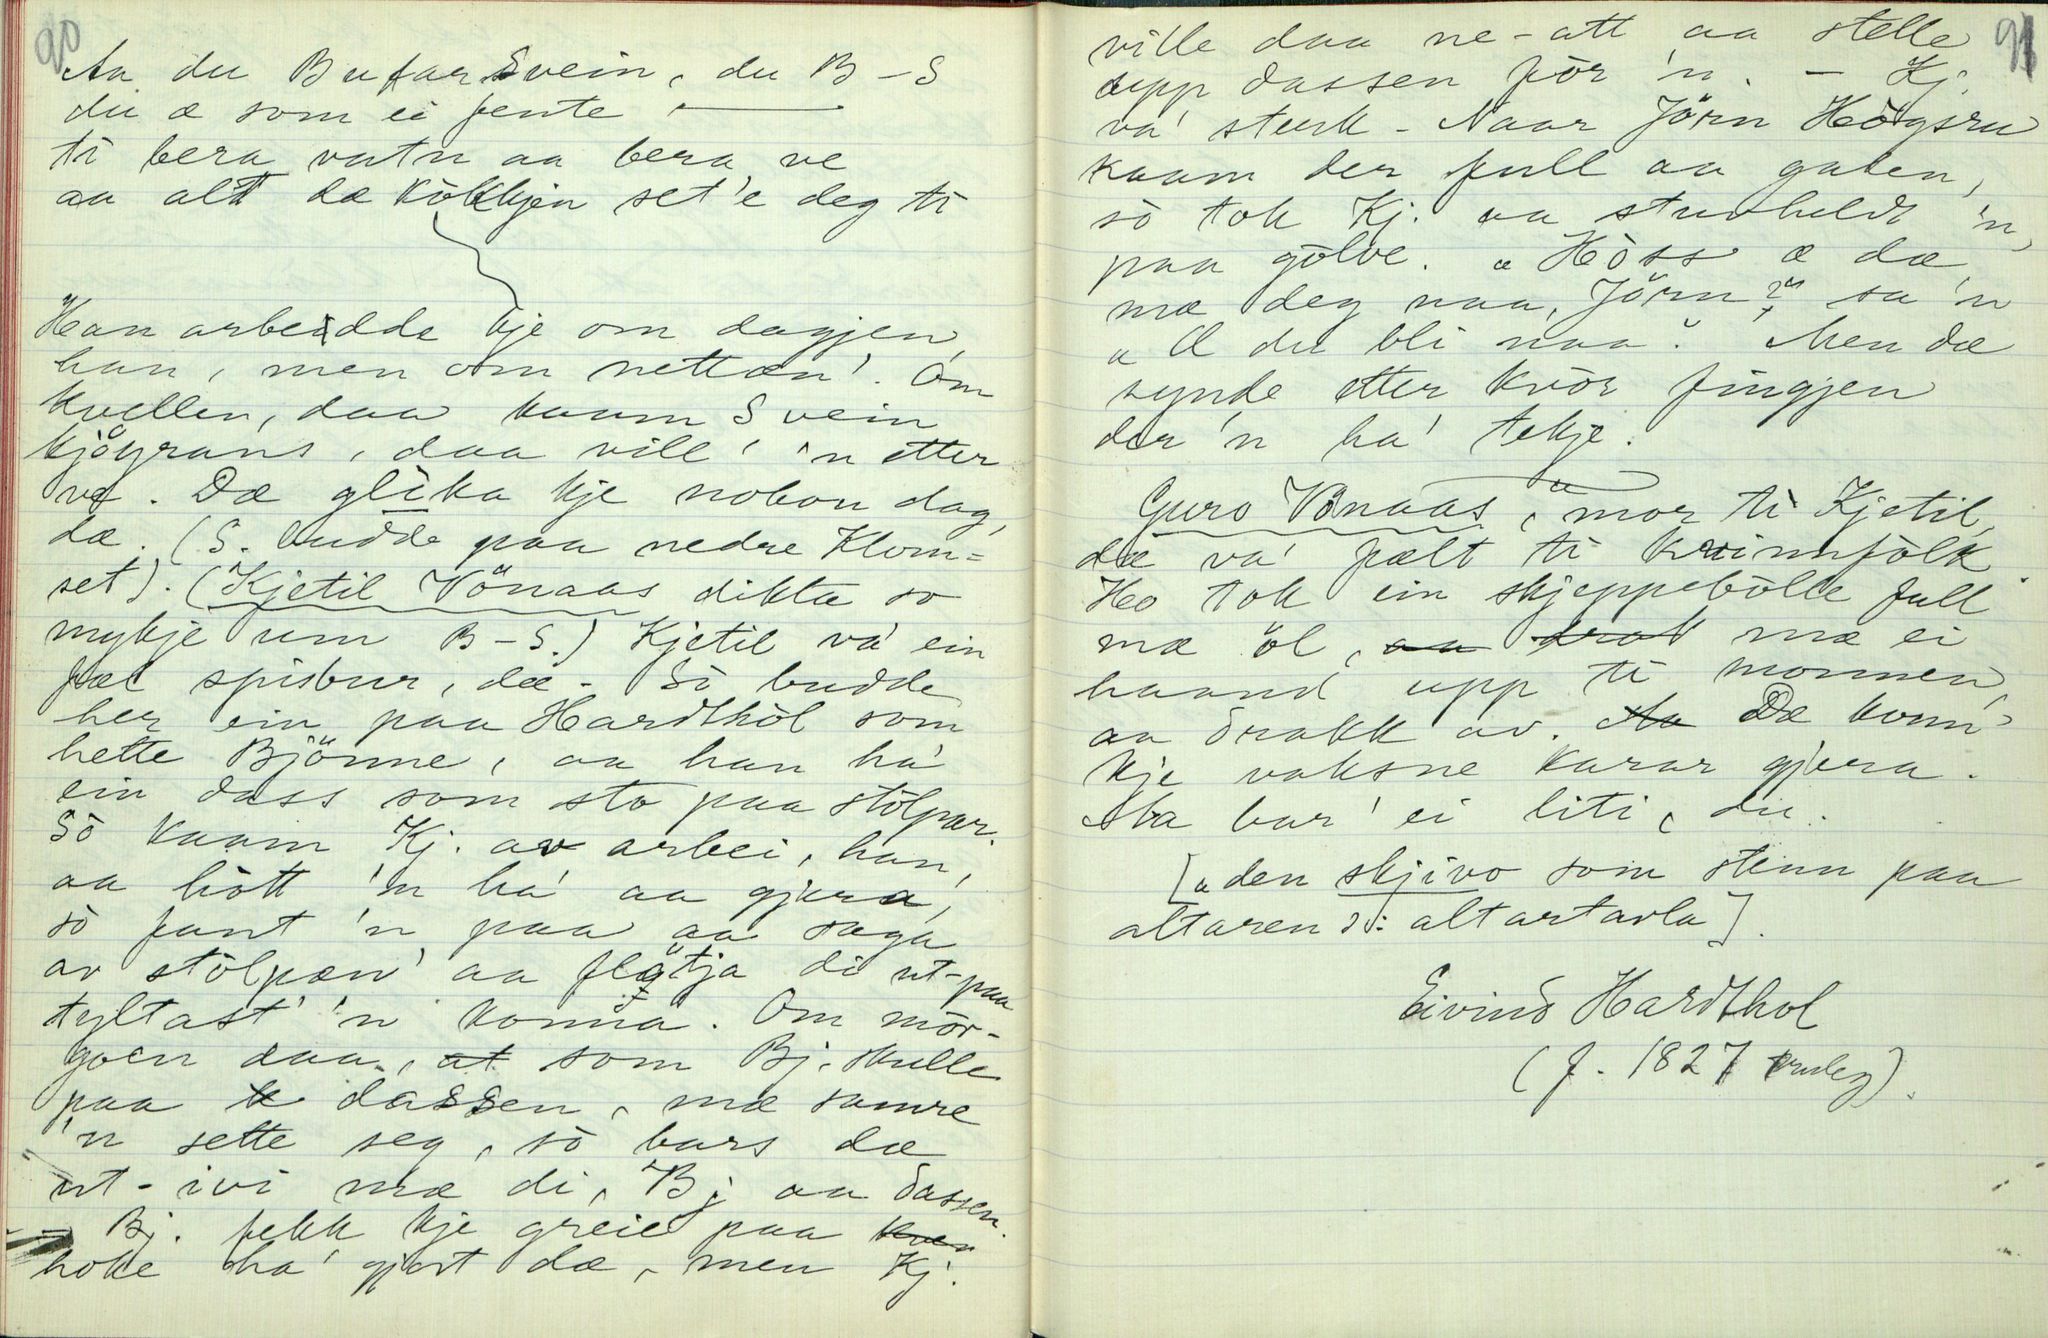 90
Aa du BufarSvein, du B-S
du æ som ei jente
ti bera vatn aa bera ve
aa alt dæ kökkjen set'e deg ti
Han arbeidde kje om dagjen,
han, men om nettan'. Om
kvellen, daa kaam Svein
kjögrans, daa vill' 'n etter
ve. Dæ glika kje nokon dag,
dæ. (S. budde paa nedre Klom=
set). (Kjetil Vönaas dikta so
mykje um B-S.) Kjetil va' ein
fæl spisbur, dæ. Sö budde
her ein paa Hardthöl som
hette Björne, aa han ha'
ein dass som sto paa stölpar.
Sö kaam Kj. av arbei, han,
aa hött 'n ha' aa gjera,
sö fant 'n paa aa saga
av stölpæn' aa flötja di ut-paa
tyltast' 'n konna. Om mör-
goen daa, at som Bj. skulle
paa dassen, mæ samre
'n sette seg, sö bars dæ
ut-ivi mæ di, Bj aa dassen.
Bj. fekk kje greie paa kven
hoke ha' gjort dæ, men Kj.
91
ville daa ne-att aa stelle
upp dassen för 'n. - Kj.
va' sterk - Naar Jörn Högsru
kaam der full aa galen,
sö tok Kj. aa stuvheldt 'n,
paa gölve. "Höss æ dæ
mæ deg naa, Jörn?" sa'n
"Æ du bli naa". Men dæ
synde etter kvör fingjen
der 'n ha' tekje.
Guro Vönaas, mor ti Kjetil,
dæ va' fælt ti kvinnfölk.
Ho tok ein skjeppebölle full
mæ öl, aa drak mæ ei
haand upp ti monnen,
aa drakk av. Aa Dæ konn'
kje vaksne karar gjera.
Aa bar' ei liti, du.
["den skjivo som stenn paa
altaren ɔ: altartavla].
Eivind Hardthol
(f. 1827 truleg).